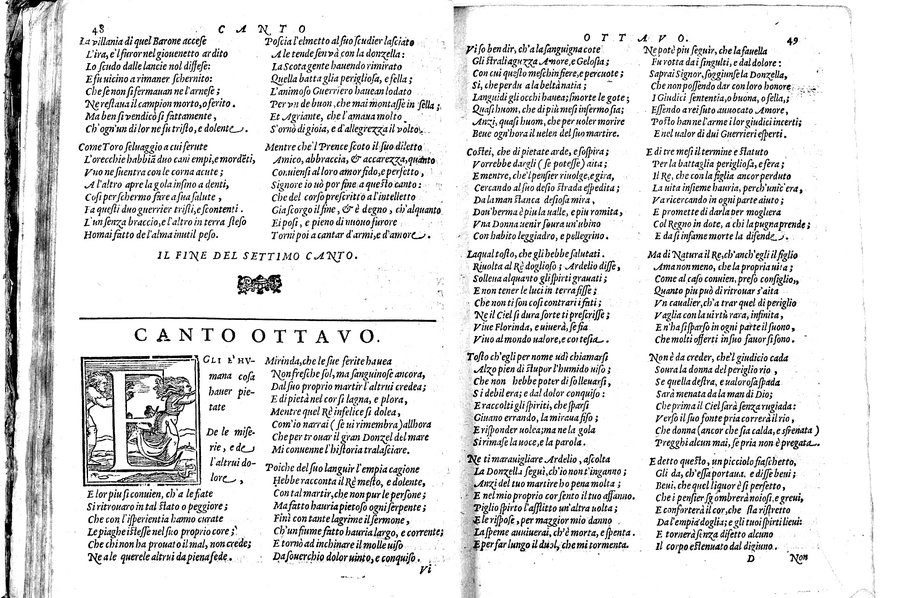 48
CANTO
La villania di quel Barone accese
L'ira, e'l furor nel giouenetto ardito
Lo scudo dalle lancie nol difese:
E fu uicino a rimaner schernito:
Che se non si fermauan ne l'arnese;
Ne restaua il campion morto, o ferito.
Ma ben si vendicò si fattamente,
Ch'ogn'un di lor ne fu tristo, e dolente.
Come Toro seluaggio a cui ferute
L'orecchie habbiã duo cani empi, e mordēti,
Vno ne suentra con le corna acute;
A l'altro apre la gola insino a denti,
Cosi per schermo fare a sua salute,
Fa questi duo guerrier tristi, e scontenti.
L'un senza braccio, e l'altro in terra steso
Homai fatto de l'alma inutil peso.
Poscia l'elmetto al suo scudier lasciato
A le tende sen và con la donzella:
La Scota gente hauendo rimirato
Quella battaglia perigliosa, e fella;
L'animoso Guerriero hauean lodato
Per vn de buon, che mai montasse in sella;
Et Agriante, che l'amaua molto
S'ornò di gioia, e d'allegrezza il volto.
Mentre che'l Prence Scoto il suo diletto
Amico, abbraccia, & accarezza, quanto
Conuiensi al loro amor fido, e perfetto,
Signore io uò por fine a questo canto:
Che del corso prescritto a l'intelletto
Gia scorgo il fine, & è degno, ch'alquanto
Ei posi, e pieno di nuouo furore
Torni poi a cantar d'armi, e d'amore.
IL FINE DEL SETTIMO CANTO.
CANTO OTTAVO.
EGLI E' HV-
mana cosa
hauer pie-
tate
De le mise-
rie, e de
l'altrui do-
lore,
E lor piu si conuien, ch'a le fiate
Si ritrouaro in tal stato o peggiore;
Che con l'isperientia hanno curate
Le piaghe istesse nel suo proprio core;
Che chi non ha prouato il mal, non crede;
Ne a le querele altrui da piena fede.
Mirinda, che le sue ferite hauea
Non fresche sol, ma sanguinose ancora,
Dal suo proprio martir l'altrui credea;
E di pietà nel cor si lagna, e plora,
Mentre quel Rè infelice si dolea,
Com'io narrai (se ui rimembra) allhora
Che per trouar il gran Donzel del mare
Mi conuenne l'historia tralasciare.
Poiche del suo languir l'empia cagione
Hebbe racconta il Rè mesto, e dolente,
Con tal martir, che non pur le persone;
Ma fatto hauria pietoso ogni serpente;
Finì con tante lagrime il sermone,
Ch'un fiume fatto hauria largo, e corrente;
E tornò ad inchinare il molle uiso
Da souerchio dolor uinto, e conquiso.
Vi
OTTAVO.
49
Vi so ben dir, ch'a la sanguigna cote
Gli strali aguzza Amore, e Gelosia;
Con cui questi meschin fiere, e percuote;
Si, che perdu a la beltà natia;
Languidi gli occhi hauea; smorte le gote;
Quasi huom, che di piu mesi infermo sia;
Anzi, quasi huom, che per uoler morire
Beue ogn'hora il uelen del suo martire.
Costei, che di pietate arde, e sospira;
Vorrebbe dargli (se potesse) aita;
E mentre, che'l pensier riuolge, e gira,
Cercando al suo desio strada espedita;
Da la man stanca desiosa mira,
Don'herma è piu la ualle, e piu romita,
Vna Donna uenir soura un'ubino
Con habito leggiadro, e pellegrino.
La qual tosto, che gli hebbe salutati.
Riuolta al Rè doglioso; Ardelio disse,
Solleua alquanto gli spirti grauati;
E non tener le luci in terra fisse;
Che non ti son cosi contrari i fati;
Ne il Ciel si dura sorte ti prescrisse;
Viue Florinda, e uiuerà, se fia
Viuo al mondo ualore, e cortesia.
Tosto ch'egli per nome udì chiamarsi
Alzo pien di stupor l'humido uiso;
Che non hebbe poter di solleuarsi,
Si debil era; e dal dolor conquiso:
E raccolti gli spiriti, che sparsi
Giuano errando, la miraua fiso;
E risponder uolea; ma ne la gola
Si rimase la uoce, e la parola.
Ne ti marauigliare Ardelio, ascolta
La Donzella seguì, ch'io non t'inganno;
Anzi del tuo martire ho pena molta;
E nel mio proprio cor sento il tuo affanno.
Piglio spirto l'afflitto un'altra uolta;
E le rispose, per maggior mio danno
La speme auuiuerai, ch'è morta, e spenta.
E per far lungo il duol, che mi tormenta.
Ne potè piu seguir, che la fauella
Fu rotta da i singulti, e dal dolore:
Saprai Signor, soggiunse la Donzella,
Che non possendo dar con loro honore
I Giudici sententia, o buona, o fella,;
Essendo a rei suto auuocato Amore,
Posto han ne l'arme i lor giudici incerti;
E nel ualor di dui Guerrieri esperti.
E di tre mesi il termine è statuto
Per la battaglia perigliosa, e fera;
Il Rè, che con la figlia ancor perduto
La uita insieme hauria, perch'unic'era,
Va ricercando in ogni parte aiuto;
E promette di darla per mogliera
Col Regno in dote, a chi la pugna prende;
E da si infame morte la difende.
Ma di Natura il Re, ch'anch'egli il figlio
Ama non meno, che la propria uita;
Come al caso conuien, preso consiglio,
Quanto piu può di ritrouar s'aita
Vn caualier, ch'a trar quel di periglio
Vaglia con la uirtù rara, infinita,
E n'ha si sparso in ogni parte il suono,
Che molti offerti in suo fauor si sono.
Non è da creder, che'l giudicio cada
Soura la donna del periglio rio,
Se quella destra, e ualorosa spada
Sarà menata da la man di Dio;
Che prima il Ciel sarà senza rugiada:
Verso il suo fonte pria correrà il rio,
Che donna (ancor che sia calda, e sfrenata)
Pregghi alcun mai, se pria non è pregata.
E detto questo, un picciolo fiaschetto,
Gli da, ch'essa portaua. e disse beui;
Beui, che quel liquor è si perfetto,
Che i pensier sgombrerà noiosi, e greui,
E conforterà il cor, che sta ristretto
Da l'empia doglia; e gli tuoi spirti lieui:
E tornerà senza difetto alcuno
Il corpo estenuato dal digiuno.
D
Non